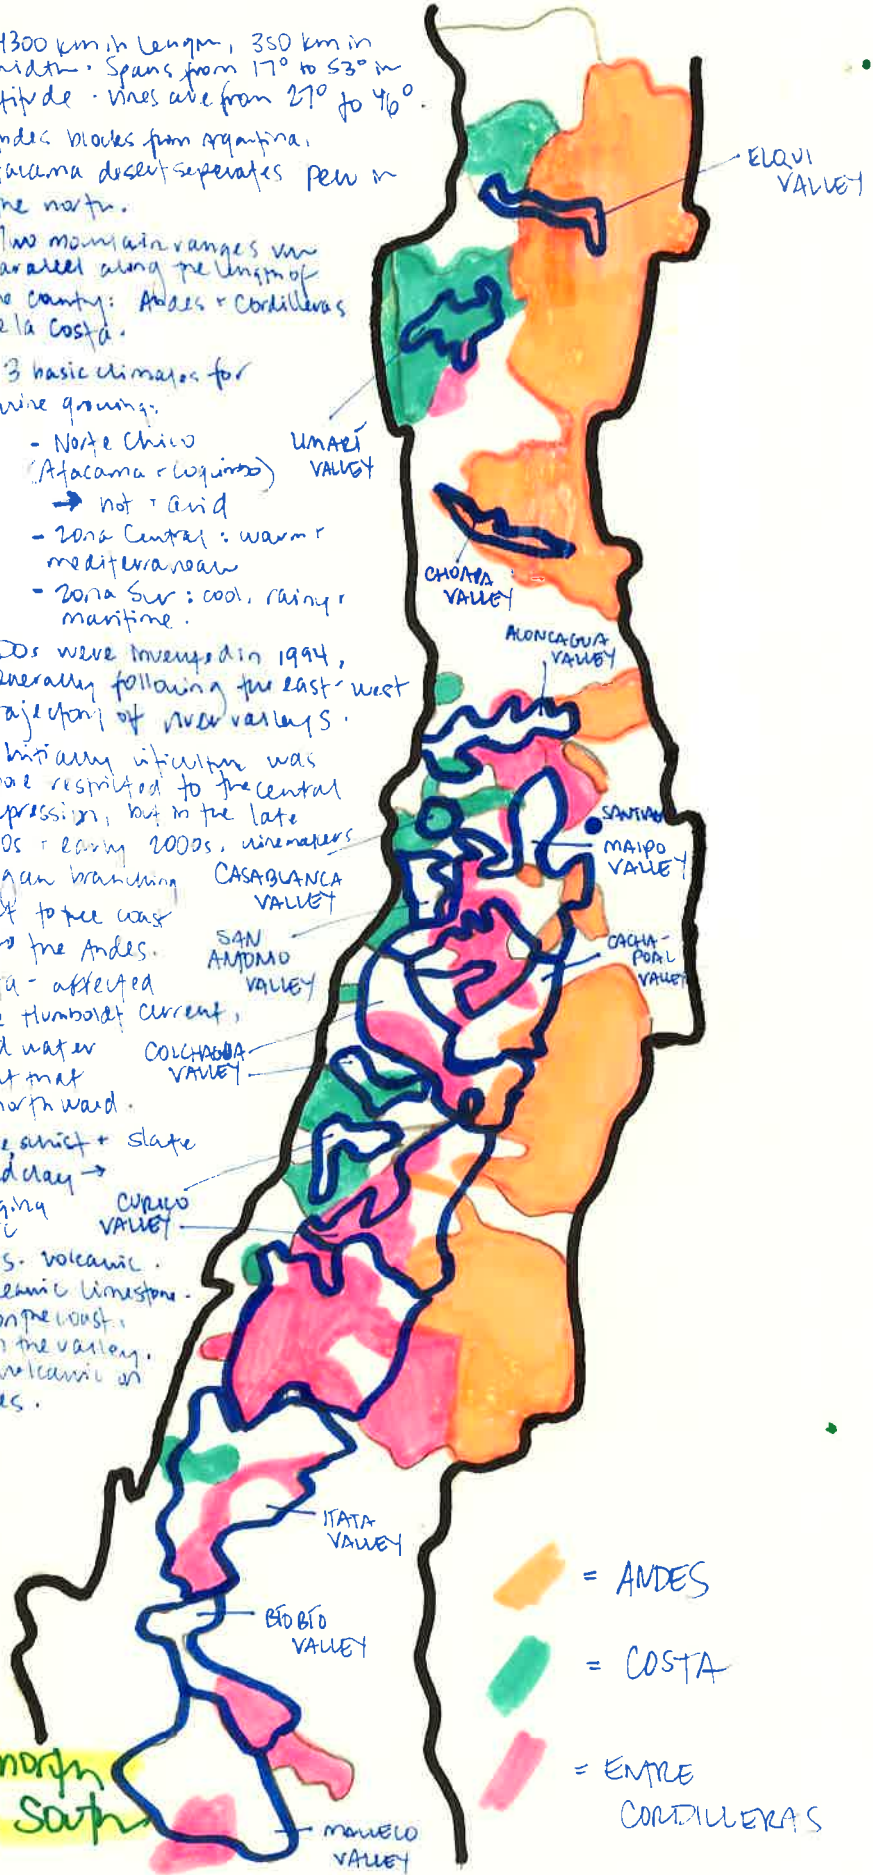 4300 km in length, 350 km in
width. Spans from 17° to 53° in
titude. vines are from 27° to 46°.
ndes blocks from Argentina.
tacama desert seperates peru in
he north.
Two mountain ranges run
arallel along the length of
e country: Andes + Cordilleras
e la Costa.
3 basic climates for
wine growing:
- Norte Chico
(Atacama + Coquimbo)
→ hot + arid
- Zona Central: warm +
mediterranean
- Zona Sur: cool, rainy +
maritime.
DOs were invented in 1994,
enerally following the east-west
ajectory of river valleys.
Initially viticulture was
ore restricted to the central
pression, but in the late
0s + early 2000s, winemakers
gan branching
t to the coast
o the Andes.
a - affected
e Humboldt Current,
d water
t that
northward.
e, schist + slate
d clay →
ging
ic
s. volcanic.
eanic limestone.
on the coast.
n the valley.
volcanic on
es.
north
South
ELQUI
VALLEY
LIMARÍ
VALLEY
CHOAPA
VALLEY
ACONCAGUA
VALLEY
SANTIAG
MAIPO
VALLEY
CASABLANCA
VALLEY
SAN
ANTONIO
VALLEY
CACHA-
POAL
VALLEY
COLCHAGUA
VALLEY
CURICO
VALLEY
ITATA
VALLEY
BÍO BÍO
VALLEY
MALLECO
VALLEY
= ANDES
= COSTA
= ENTRE
CORDILLERAS